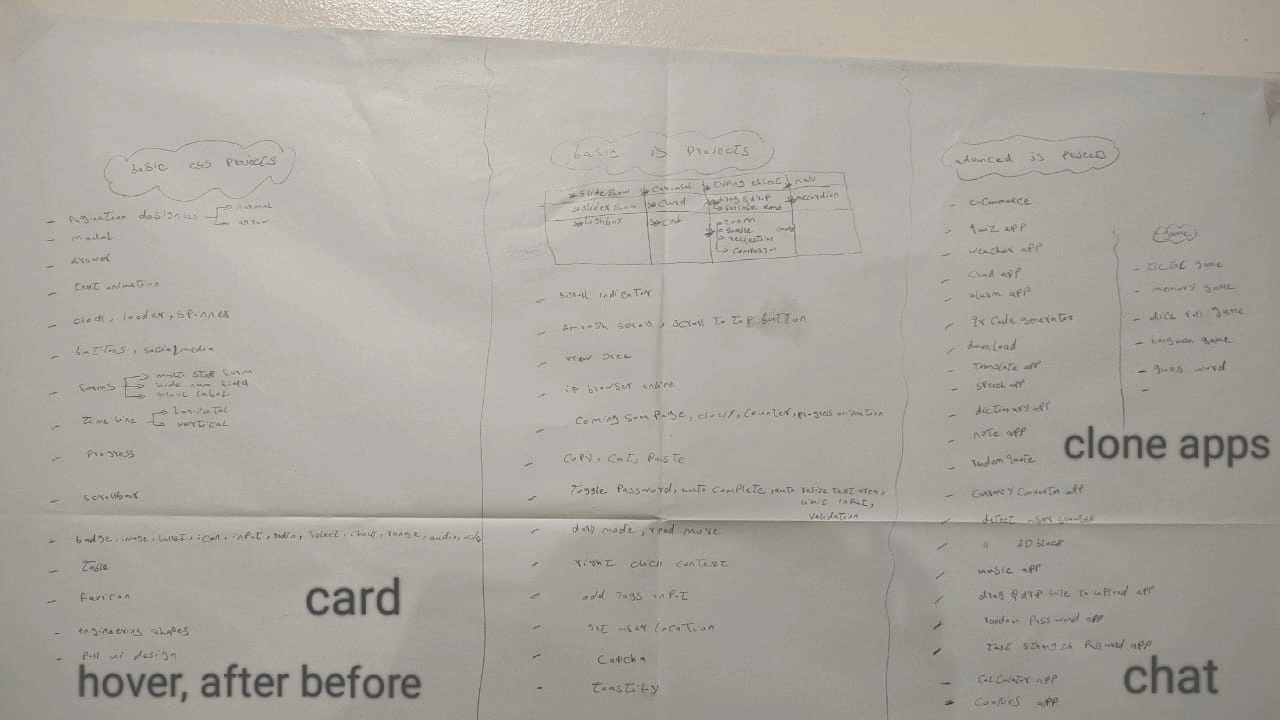 basic css projects
- Pagination design(s)
→ normal
→ arrow
- modal
- drawer
- text animation
- clock, loader, spinner
- buttons, social media
- forms
→ multi step form
→ hide num field
→ float label
- Time line
→ horizontal
→ vertical
- Progress
- scrollbar
- badge, image, bullet, icon, input, radio, select, check, range, audio, video
- Table
- Favicon
- engineering shapes
- Full ui design
card
hover, after before
basic js projects
slide show
carousel
typing effect
nav
slider show
Card
drag & drop
accordion
lightbox
zoom
image
reflection
- scroll indicator
- smooth scroll, scroll to top button
- view
- if browser online
- Coming soon page, clock, counter, progress animation
- Copy, Cut, Paste
- Toggle Password, auto complete, auto resize text area,
limit input,
validation
- dark mode, read more
- right click context
- add Tags input
- get user location
- Capcha
- toastify
advanced js projects
- e-Commerce
- quiz app
- weather app
- crud app
- alarm app
- qr code generator
- download
- translate app
- speech app
- dictionary app
- note app
- random quote
- Currency Converter app
- detect user browser
- " AD block
- music app
- drag & drop file to upload app
- random Password app
- Test strength Password app
- CalCulator app
- cookies app
game
- tictac game
- memory game
- dice roll game
- hangman game
- gues word
-
clone apps
chat